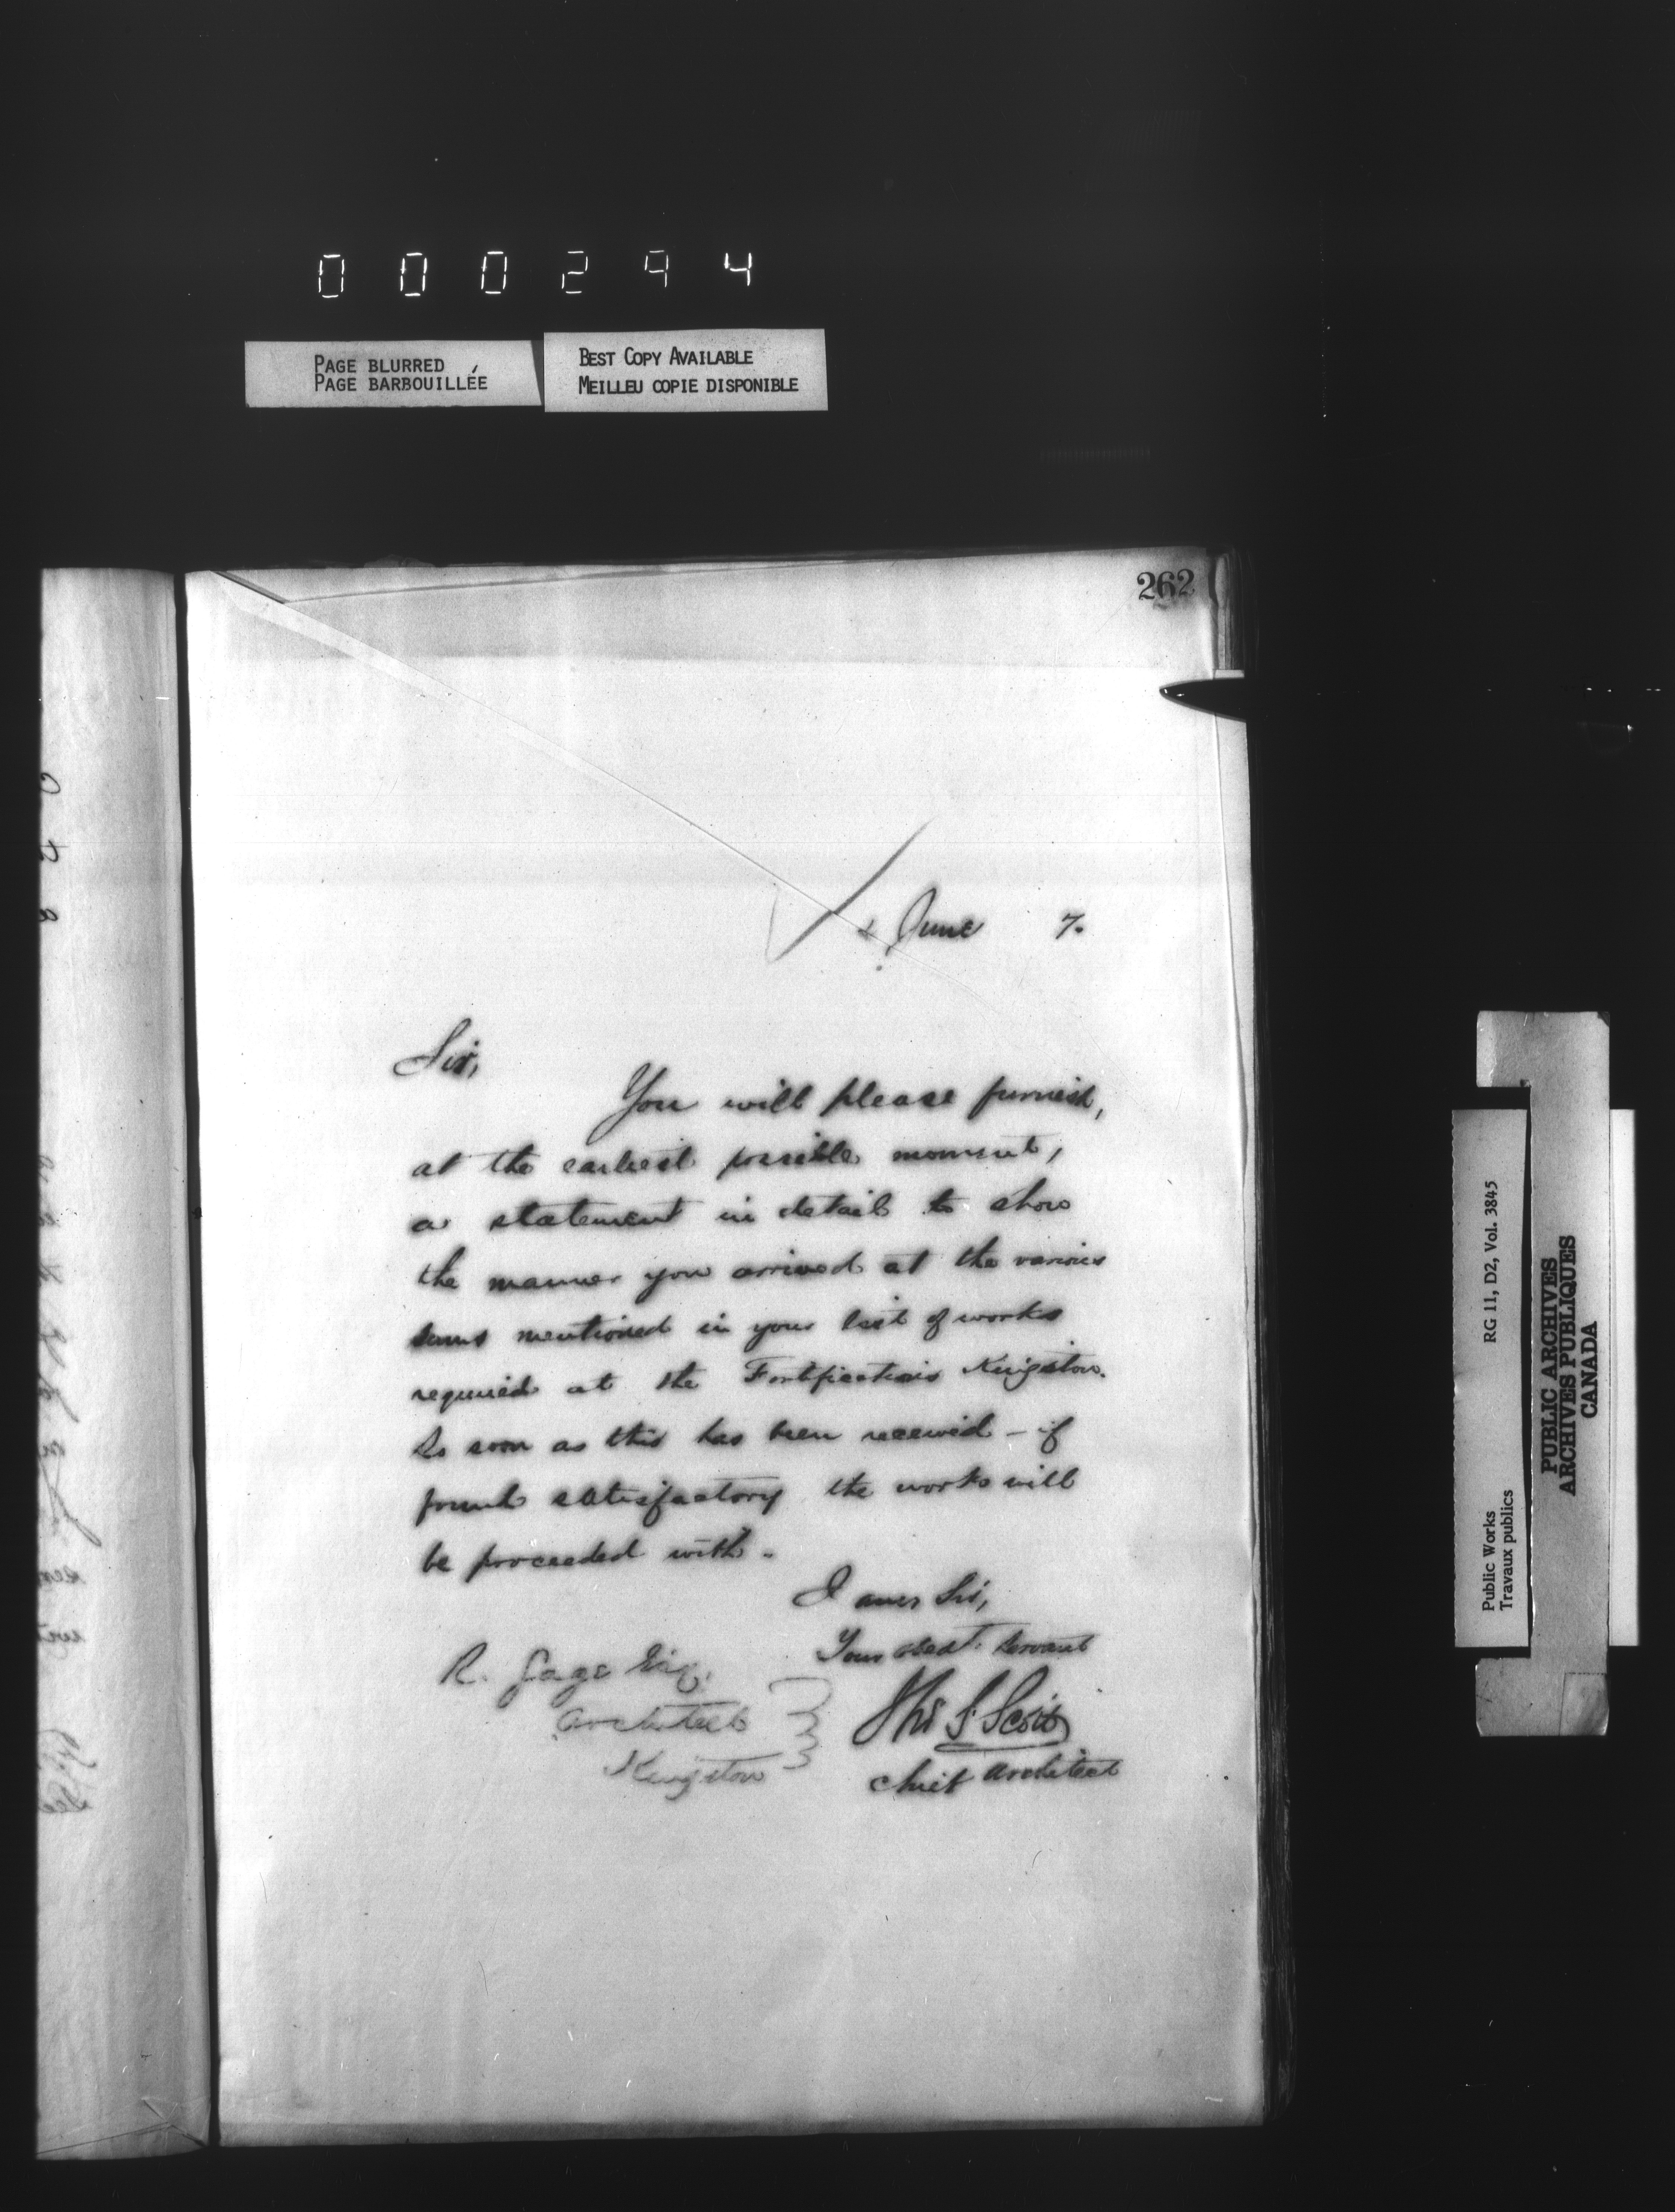 000294
PAGE BLURRED
PAGE BARBOUILLÉE
BEST COPY AVAILABLE
MEILLEU COPIE DISPONIBLE
262
June 7.
Sir,
You will please furnish,
at the earliest possible moment,
a statement in detail to show
the manner you arrived at the various
sums mentioned in your list of works
required at the Fortifications Kingston.
So soon as this has been received – if
found satisfactory the works will
be proceeded with.
I am Sir,
Your obedt. Servant
Thos S. Scott
Chief Architect
R. Gage Esq.
Architect
Kingston
Public Works
Travaux publics
RG 11, D2, Vol. 3845
PUBLIC ARCHIVES
ARCHIVES PUBLIQUES
CANADA